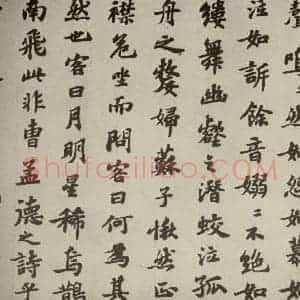 聲嗚〻然如怨如慕如
泣如訴餘音嫋〻不絕如
縷舞幽壑之潛蛟泣孤
舟之嫠婦蘇子愀然正
襟危坐而問客曰何為其
然也客曰月明星稀烏鵲
南飛此非曹孟德之詩乎
Shufaziliao.COM